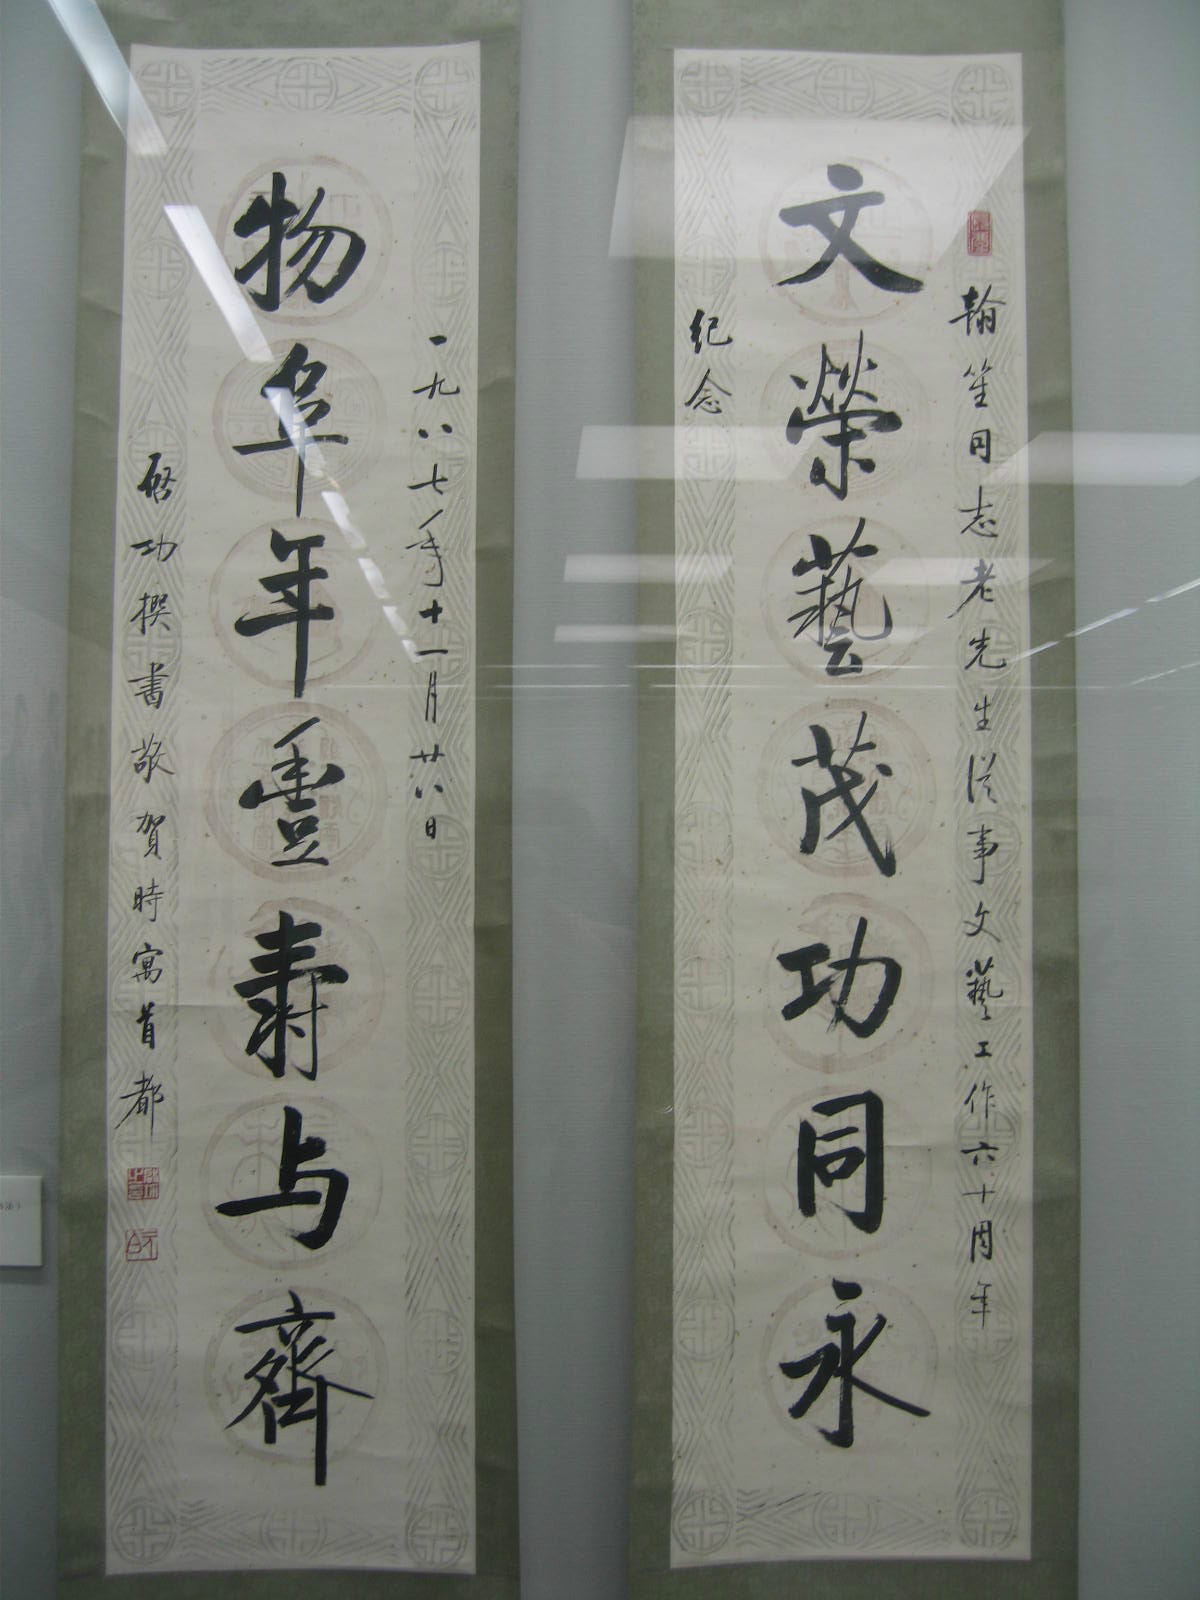 翰笙同志老先生從事文藝工作六十周年
文榮藝茂功同永
纪念
一九八七年十一月廿八日
物阜年豐壽与齊
啓功撰書敬賀時寓首都